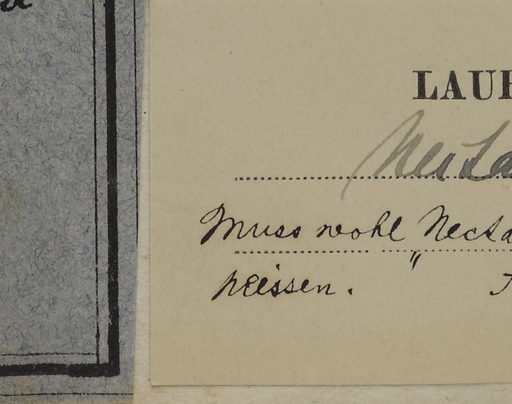 LAU
Muss wohl „Necta
heissen.